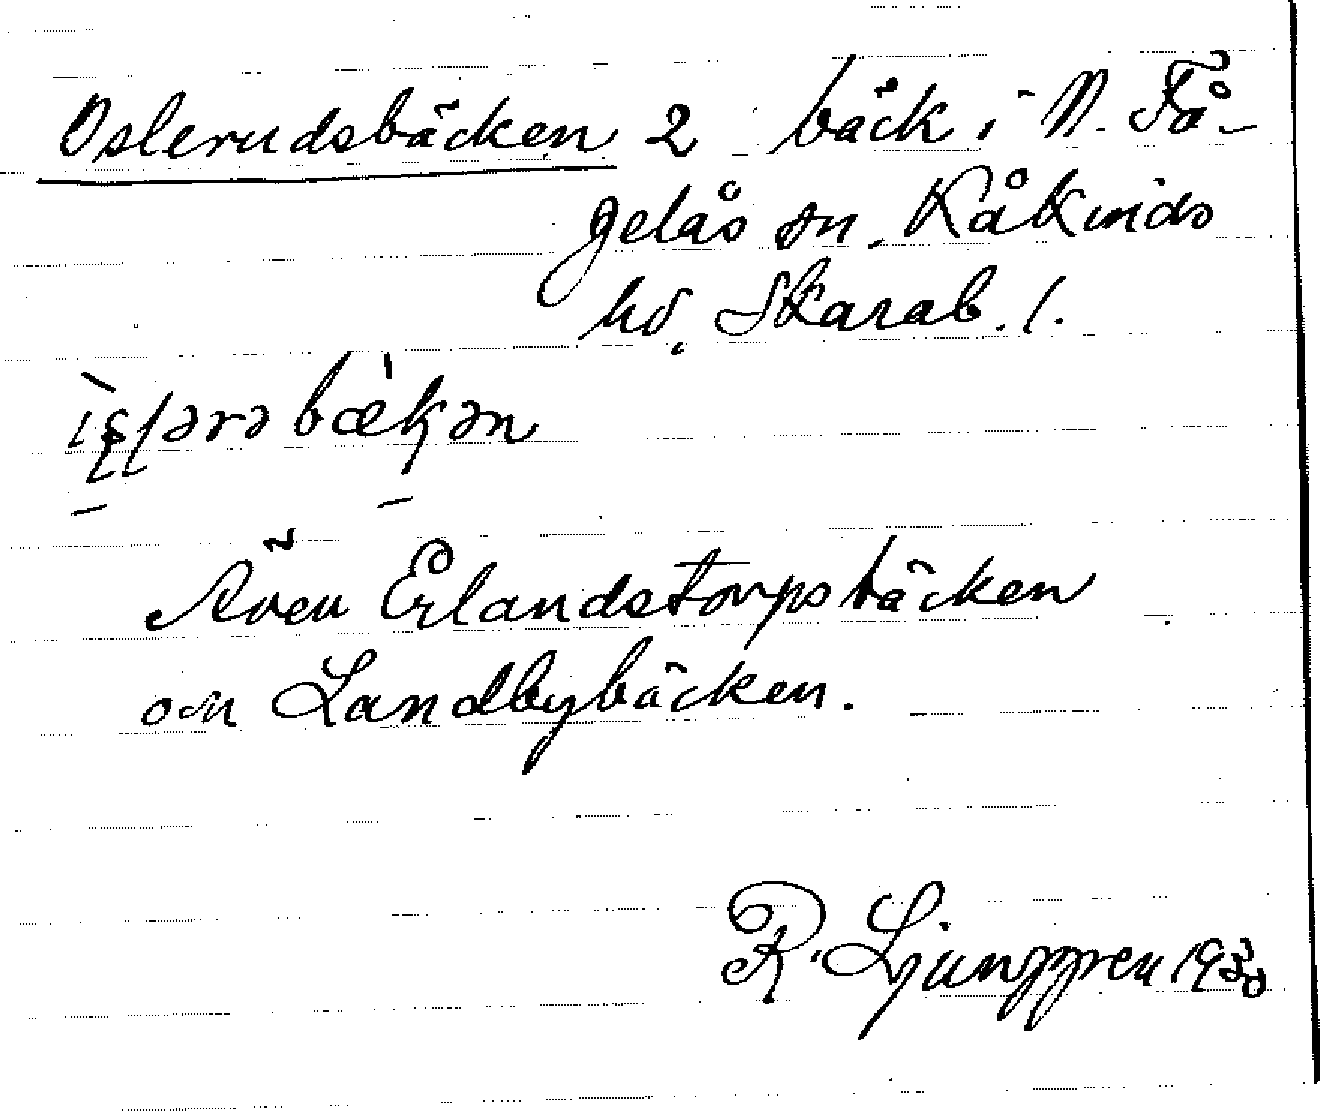 Oslerudsbäcken 2 bäck i N. Få-
gelås sn. Kåkinds
hd. Skarab. l.
bækən
Även Erlandstorpsbäcken
och Landbybäcken.
R. Ljunggren 1930